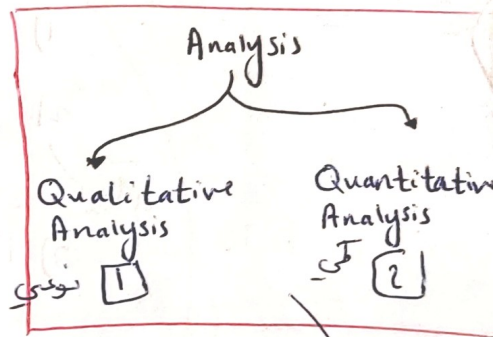 Analysis
Qualitative
Analysis
نوعي 1
Quantitative
Analysis
كمي 2